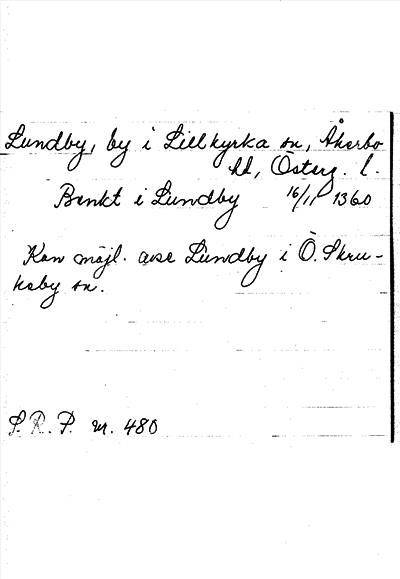 Lundby, by i Lillkyrka sn, Åkerbo
hd, Österg. l.
Benkt i Lundby 16/11 1360
Kan möjl. avse Lundby i Ö. Skru-
keby sn.
S. R. P. nr. 480